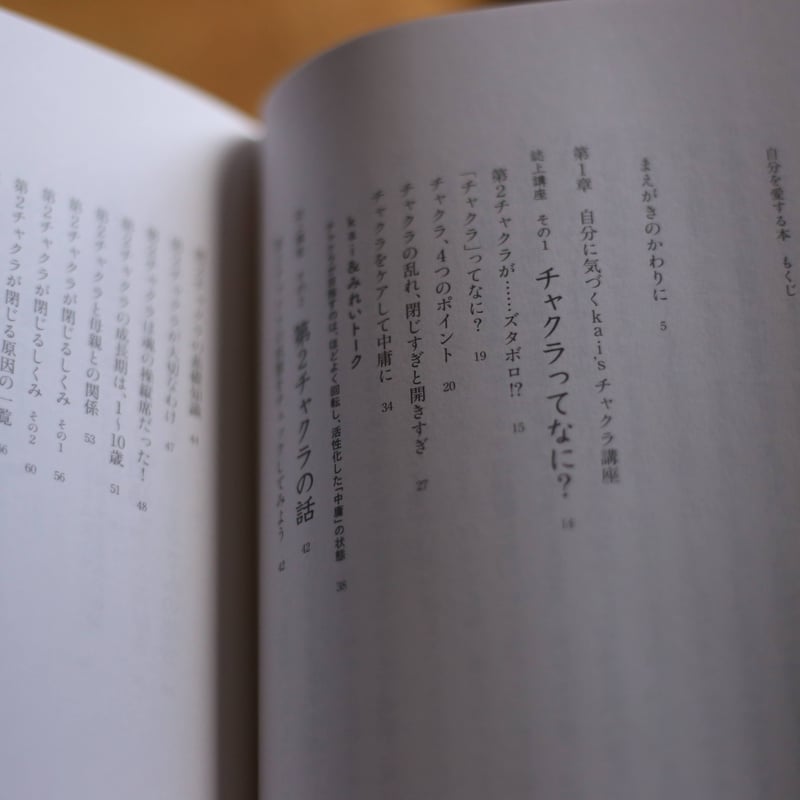 自分を愛する本 もくじ
まえがきのかわりに 5
第1章 自分に気づくkai'sチャクラ講座
誌上講座 その1 チャクラってなに? 14
第2チャクラが……ズタボロ!? 15
「チャクラ」ってなに? 19
チャクラ、4つのポイント 20
チャクラの乱れ、閉じすぎと開きすぎ 27
チャクラをケアして中庸に 34
kai&みれいトーク
ほどよく回転し、活性化した「中庸」の状態 38
第2チャクラの話 42
チェックしてみよう 42
第2チャクラの基礎知識 44
が大切なわけ 47
は魂の操縦席だった! 48
第2チャクラの成長期は、1〜10歳 51
第2チャクラと母親との関係 53
第2チャクラが閉じるしくみ その1 56
第2チャクラが閉じるしくみ その2 60
第2チャクラが閉じる原因の一覧 66